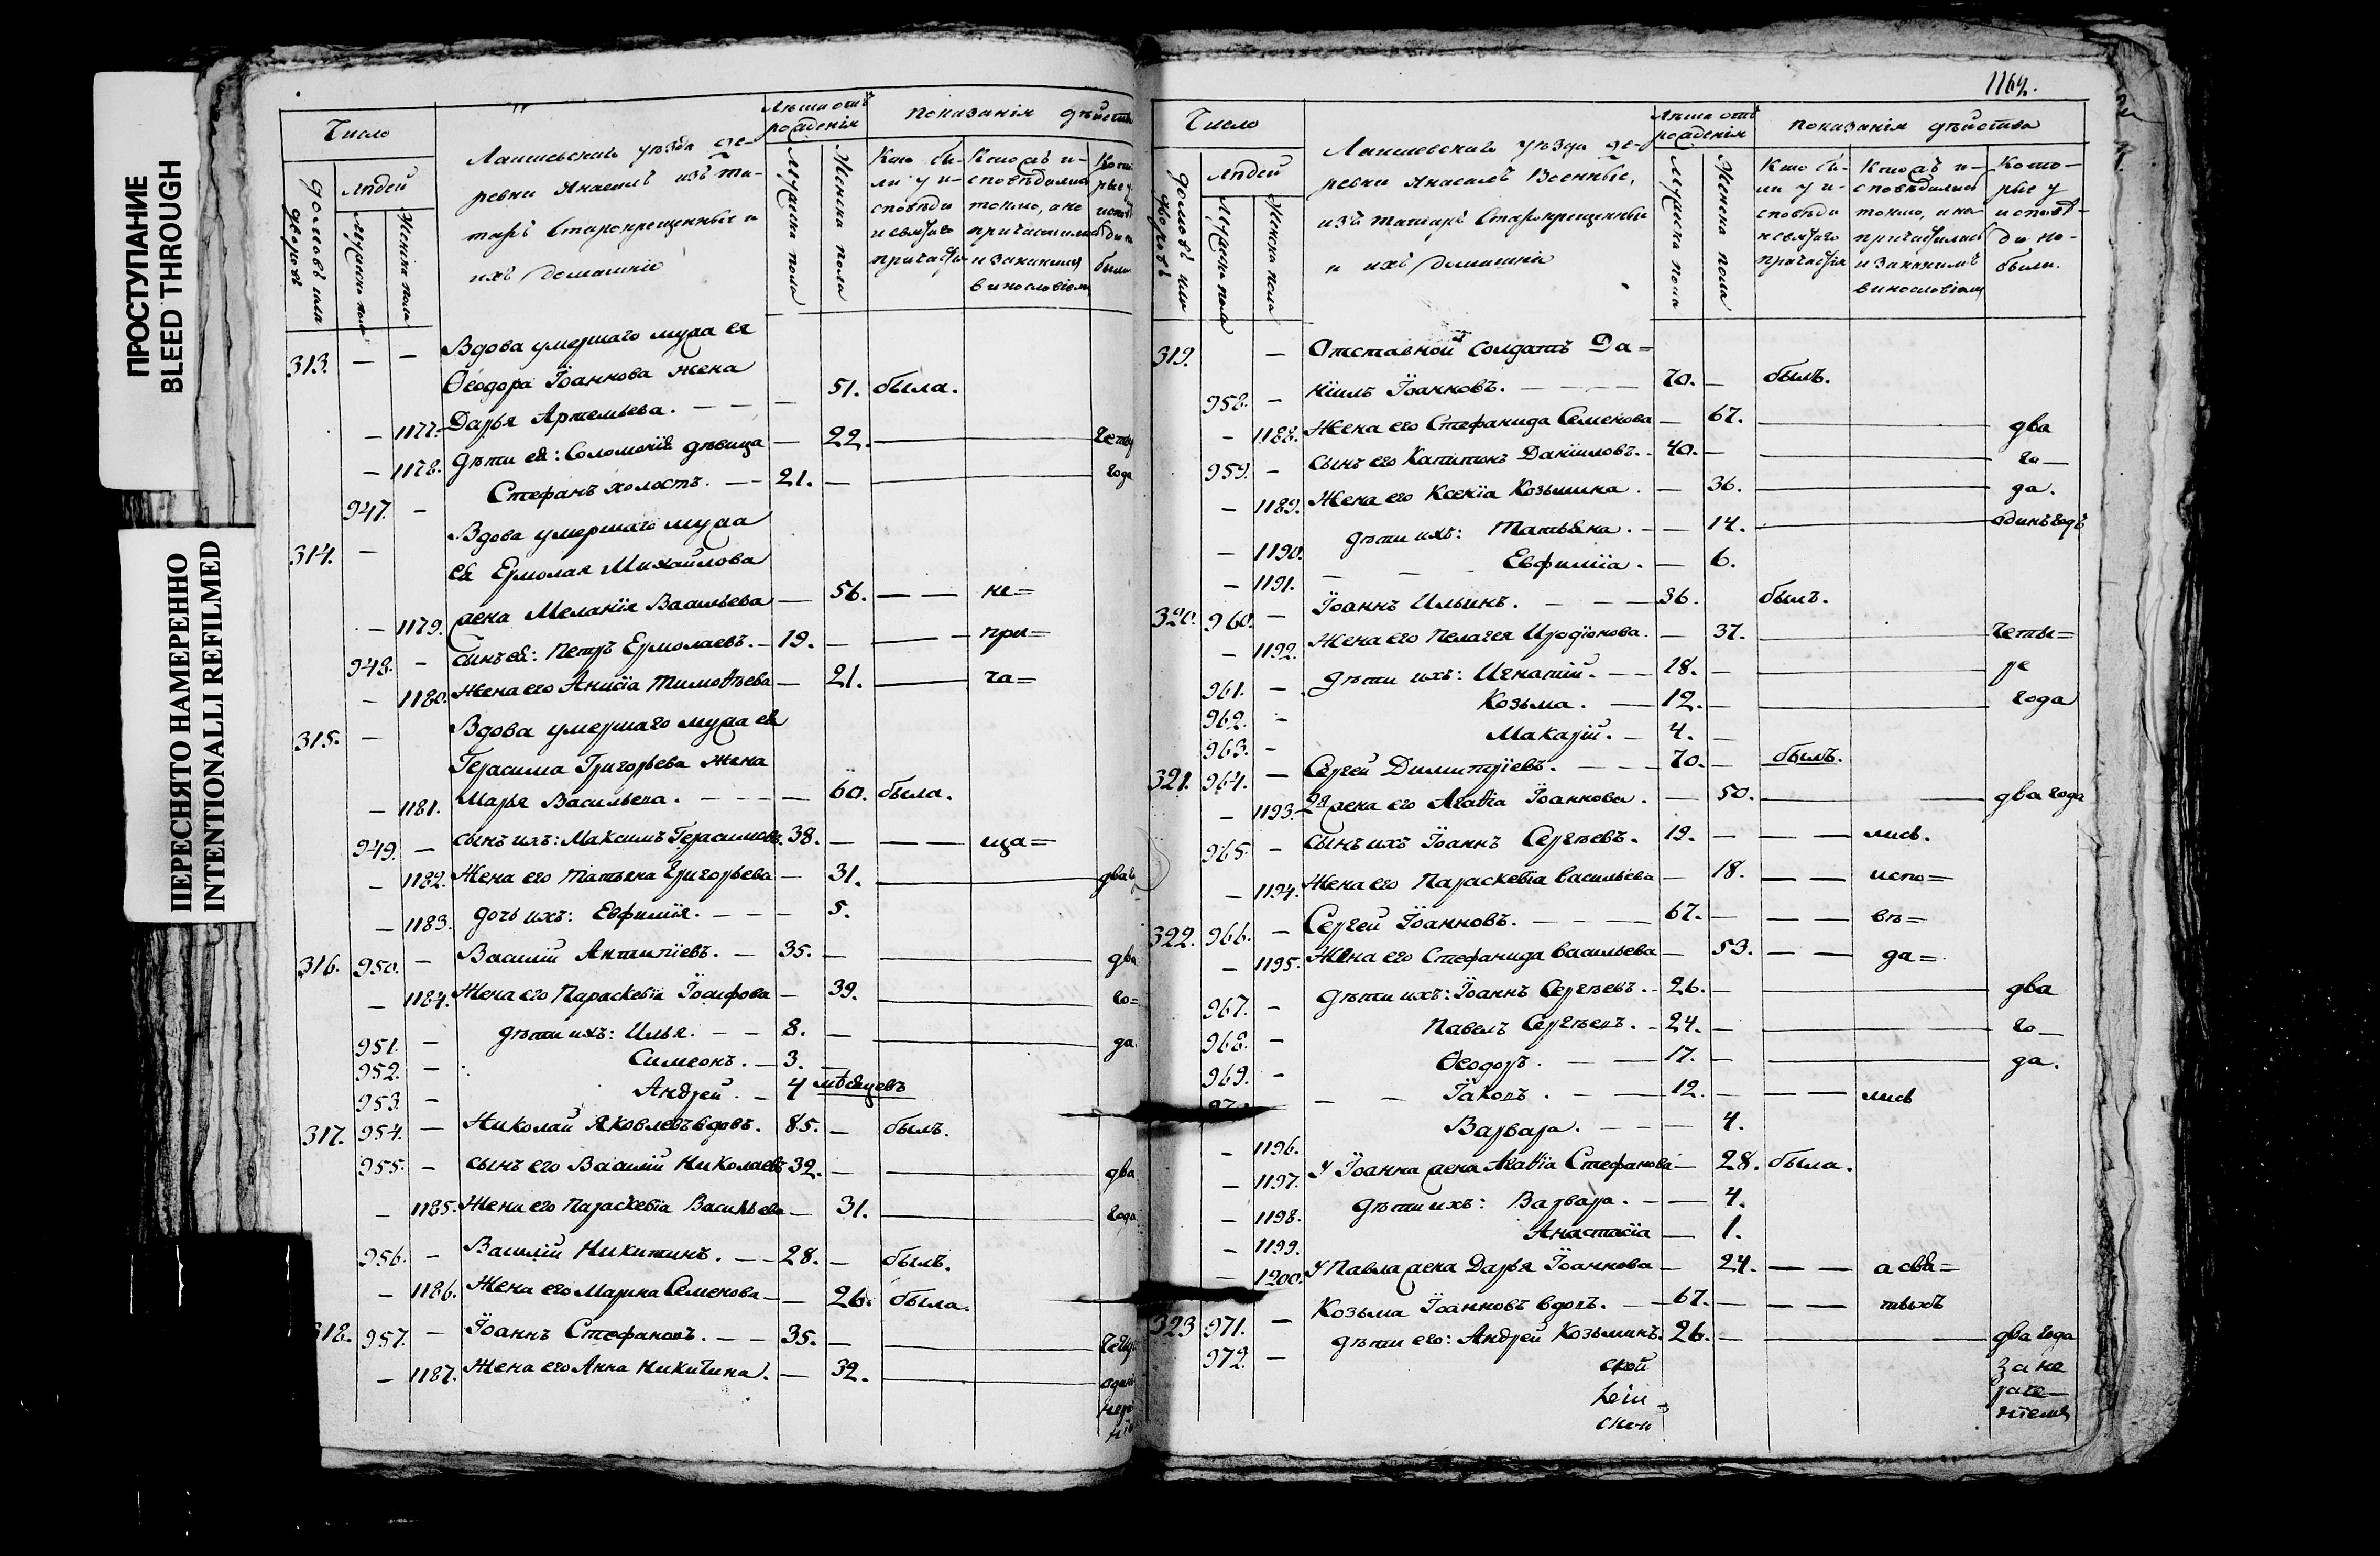 ПРОСТУПАНИЕ
BLEED THROUGH
ПЕРЕСНЯТО НАМЕРЕННО
INTENTIONALLI REFILMED
Число
Лѣта отъ рожденія
Показанія дѣйства
домовъ или дворовъ
людей
Мужска пола
Женска пола
Лаишевскаго уѣзда де-
ревни Янасалъ изъ та-
таръ Старокрещенные и
ихъ домашніе
Мужска пола
Женска пола
Кто бы-
ли у и-
сповѣди
и святаго
313. — — Вдова умершаго мужа ея
Ѳеодора Іоаннова жена
— 1177. Дарья Артемьева. — — — 51. была.
— 1178. Дѣти ея: Соломонія дѣвица — 22. четы
947. — Стефанъ холостъ. — — 21. — года
314. — Вдова умершаго мужа
ея Ермолая Михайлова
— 1179. жена Меланія Васильева — 56. — — не=
948. — сынъ ея: Петръ Ермолаевъ. — 19. — — при=
— 1180. Жена его Анисіа Тимоѳѣева — 21. — ча=
315. — Вдова умершаго мужа ея
Герасима Григорьева жена
— 1181. Марья Васильева. — — — 60. была.
949. — сынъ ихъ: Максимъ Герасимовъ. 38. — — — ща=
— 1182. Жена его Татьяна Григорьева — 31. — два
— 1183. дочь ихъ: Евфимія. — — — 5.
316. 950. — Василій Антипіевъ. — 35. — — два
— 1184. Жена его Параскевіа Іосифова — 39. — го=
951. — дѣти ихъ: Илья. — — 8. — — да.
952. — Симеонъ. — 3. —
953. — Андрей. — 4 мѣсяцевъ
317. 954. — Николай Яковлевъ вдовъ. 85. — былъ.
955. — сынъ его Василій Николаевъ 32. — — два
— 1185. Жена его Параскевіа Васильева — 31. — года
956. — Василій Никитинъ. — — 28. — былъ.
— 1186. Жена его Марина Семенова — — 26. была.
318. 957. — Іоаннъ Стефановъ. — — 35. —
— 1187. Жена его Анна Никитина. — 32.
1164.
Число
Лѣта отъ рожденія
Показанія дѣйства
домовъ или дворовъ
людей
Мужска пола
Женска пола
Лаишевскаго уѣзда де-
ревни Янасалъ Военные,
изъ татаръ Старокрещенные
и ихъ домашніе
Мужска пола
Женска пола
Кто бы-
ли у и-
сповѣди
и святаго
причастія
Кто
сповѣдались
токмо, а не
причастились
и за какимъ
винословіемъ
Кото-
рые у
исповѣ-
ди не-
были.
319. — Отставной солдатъ Да=
958. — ніилъ Іоанновъ. — — — — 70. — былъ.
— 1188. Жена его Стефанида Семенова — 67. — два
959. — сынъ его Капитонъ Даніиловъ. — 40. — — го —
— 1189. Жена его Ксеніа Козьмина. — 36. — да.
— 1190. дѣти ихъ: Татьяна. — — 14. — одинъ годъ
— 1191. — — Евфиміа. — 6.
320. 960. — Іоаннъ Ильинъ. — — — 36. былъ.
— 1192. Жена его Пелагея Иродіонова. — 37. — четы=
961. — дѣти ихъ: Игнатій. — — 18. — — ре
962. — Козьма. — 12. — — года
963. — Макарій. — 4. —
321. 964. — Сергей Димитріевъ. — — — 70. — былъ.
— 1193. 2я жена его Агаѳіа Іоаннова. — 50. — два года
965. — сынъ ихъ Іоаннъ Сергѣевъ. 19. — — — лись.
— 1194. Жена его Параскевіа Васильева — 18. — — испо=
322. 966. — Сергей Іоанновъ. — — — — 67. — — — вѣ=
— 1195. Жена его Стефанида Васильева — 53. — — да=
967. — дѣти ихъ: Іоаннъ Сергѣевъ. — 26. — — два
968. — Павелъ Сергѣевъ. — 24. — — го —
969. — Ѳеодоръ. — — 17. — — да.
— — Іаковъ. — — 12. — — — лись
— 1196. Варвара. — — — 4.
— 1197. У Іоанна жена Агаѳіа Стефанова — 28. была.
— 1198. дѣти ихъ: Варвара. — — 4.
— 1199. Анастасіа — 1.
— 1200. У Павла жена Дарья Іоаннова — 24. — — а свя=
323 971. — Козьма Іоанновъ вдовъ. — — 67. — — — тыхъ
972. — дѣти его: Андрей Козьминъ. 26. — — два года
за не
раче—
ніемъ